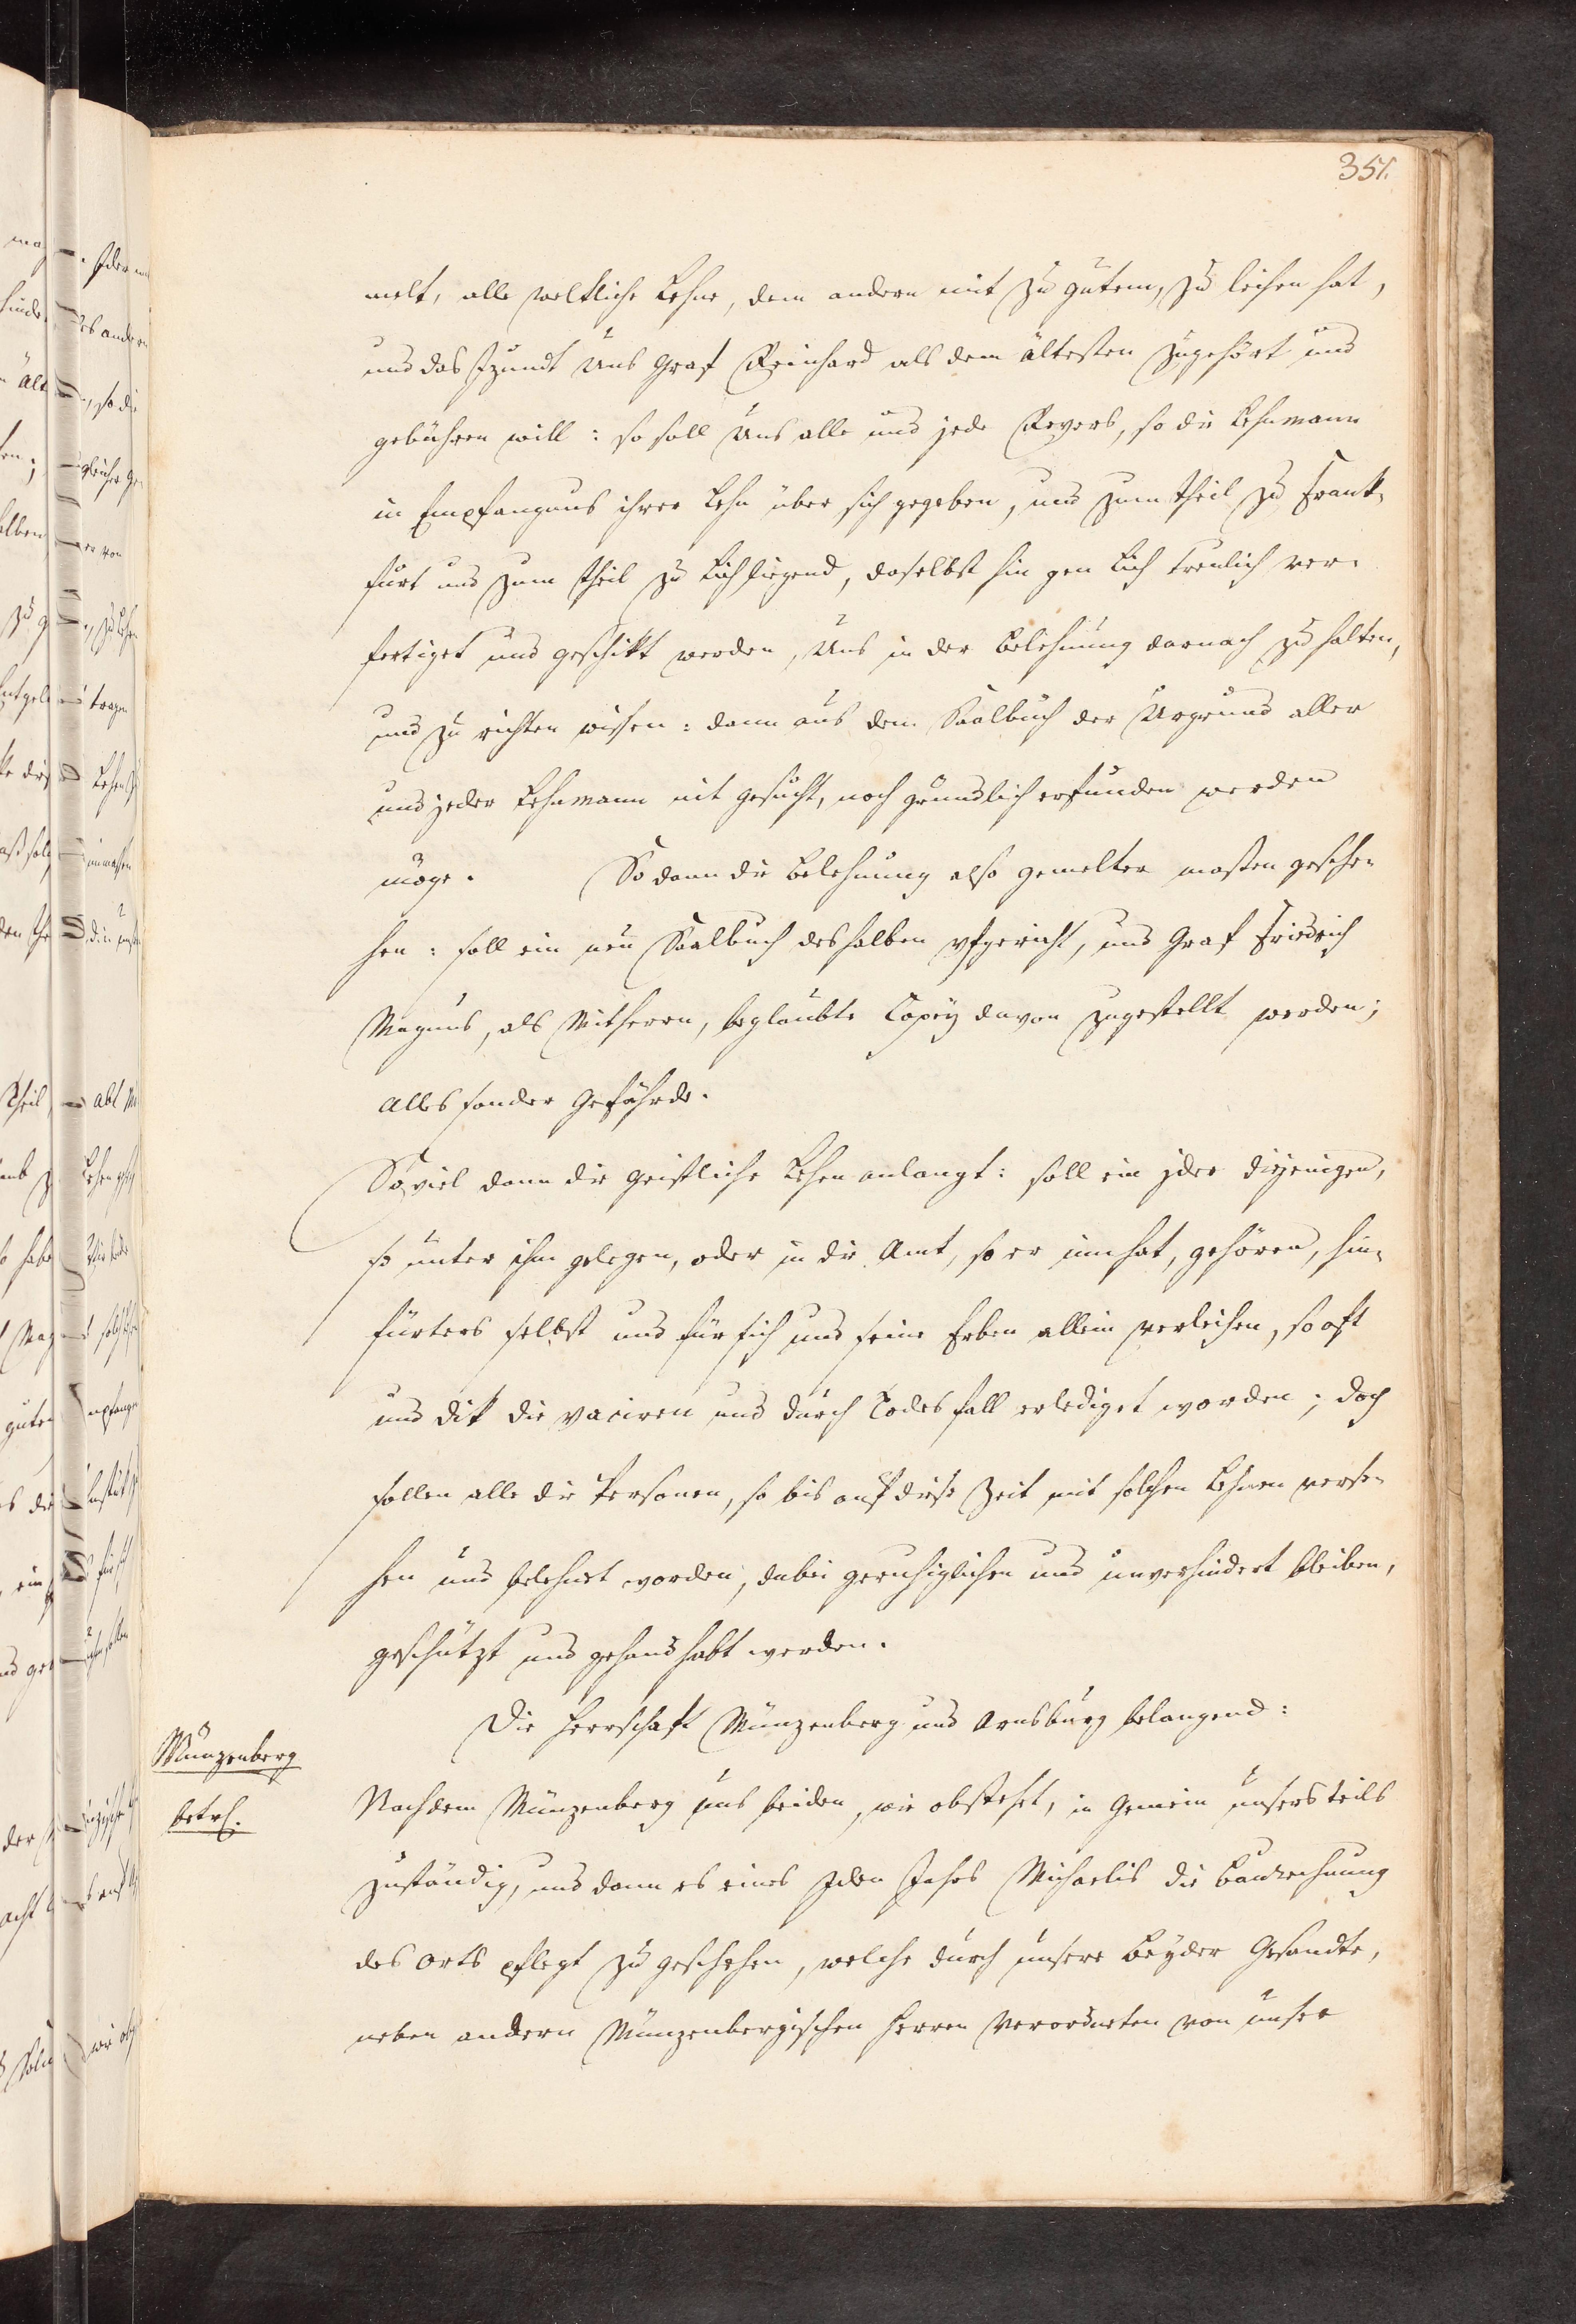 357.
melt, alle weltliche Lehne, dem andern mit zu gutem, zu leihen hat,
und das Izundt Uns Graf Reinhard als dem ältesten zugehört und
gebühren will: so soll Uns alle und jede Revers, so die Lehnmann
in Empfangnus ihrer Lehn über sich gegeben, und zum theil zu Frank-
furt und zum theil zu Lich liegend, daselbst hin gen Lich treulich ver-
fertiget und geschikt werden, Uns in der Belehnung darnach zu halten,
und zu richten wissen: dann aus dem Saalbuch der Urgrund aller
und jeder Lehnmann nit gesucht, noch gründlich erfunden werden
möge. So dann die Belehnung also gemelter maßen gesche-
hen: soll ein neu Saalbuch deshalben ufgericht, und Graf Friedrich
Magnus, als Mitherrn, beglaubte Copey davon zugestellt werden;
alles sonder Gefährde.
Soviel dann die geistliche Lehen anlangt: soll ein jder diejenigen,
so unter ihm gelegen, oder in die Amt, so er inn hat, gehören, hin-
fürters selbst und für sich und seine Erben allein verleihen, so oft
und dik die vaciren und durch Todesfall erlediget worden; doch
sollen alle die Personen, so bis auf diese Zeit mit solchen Lehnen verse-
hen und belehnet worden, dabei geruhiglichen und unverhindert bleiben,
geschützt und gehandhabt werden.
Die Herrschaft Münzenberg und Arnsburg belangend:
Münzenberg
betrf.
Nachdem Münzenberg uns beiden, wie obstehet, in Gemein unsers teils
zuständig, und dann es eines Jden Jahrs Michaelis die Baurechnung
des Orts pflegt zu geschehen, welche durch unsere beyder Gesandte,
neben andern Münzenbergischen Herren Verordneten von unser